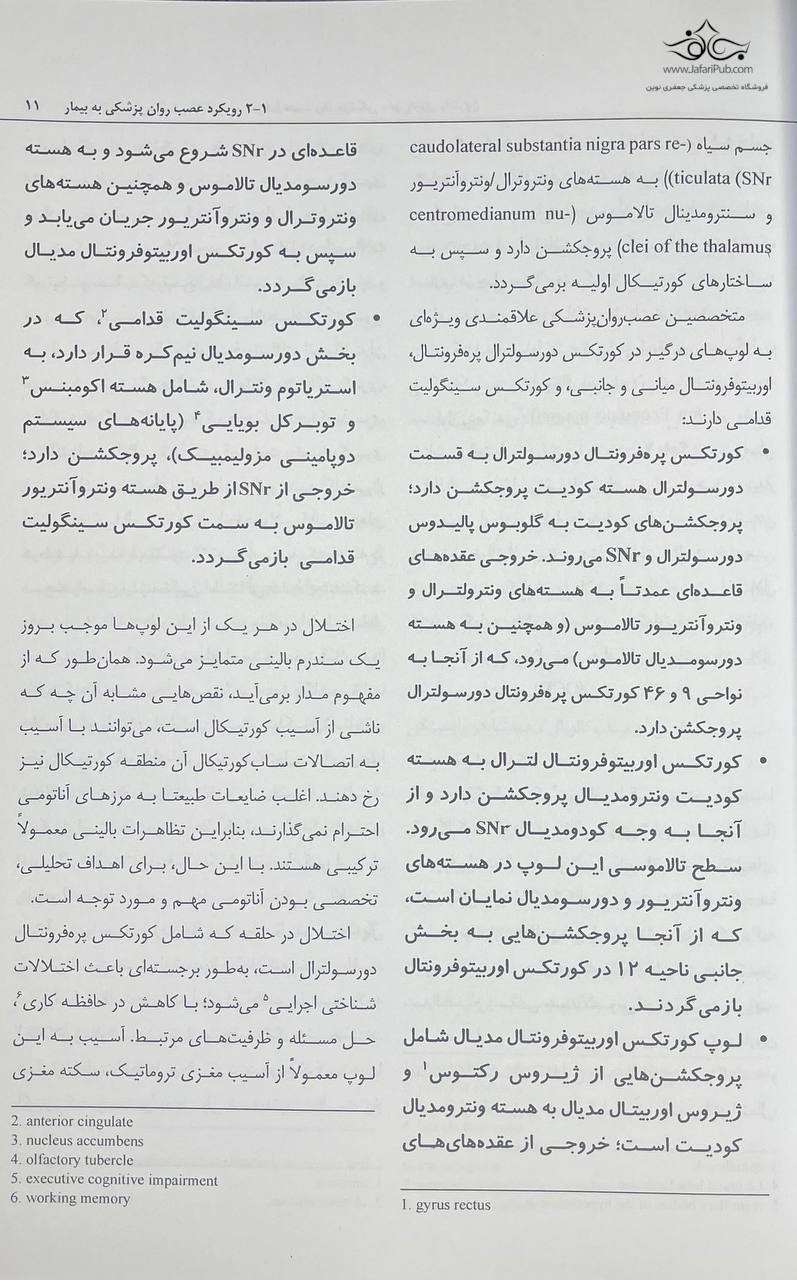 جعفری
www.JafariPub.com
فروشگاه تخصصی پزشکی جعفری نوین
۲-۱ رویکرد عصب روان پزشکی به بیمار ۱۱
جسم سیاه (caudolateral substantia nigra pars re-
ticulata (SNr)) به هسته‌های ونترولترال/ونتروآنتریور
و سنترومدینال تالاموس (centromedianum nu-
clei of the thalamus) پروجکشن دارد و سپس به
ساختارهای کورتیکال اولیه برمی‌گردد.
متخصصین عصب‌روان‌پزشکی علاقمندی ویژه‌ای
به لوپ‌های درگیر در کورتکس دورسولترال پره‌فرونتال،
اوربیتوفرونتال میانی و جانبی، و کورتکس سینگولیت
قدامی دارند:
• کورتکس پره‌فرونتال دورسولترال به قسمت
دورسولترال هسته کودیت پروجکشن دارد؛
پروجکشن‌های کودیت به گلوبوس پالیدوس
دورسولترال و SNr می‌روند. خروجی عقده‌های
قاعده‌ای عمدتاً به هسته‌های ونترولترال و
ونتروآنتریور تالاموس (و همچنین به هسته
دورسومدیال تالاموس) می‌رود، که از آنجا به
نواحی ۹ و ۴۶ کورتکس پره‌فرونتال دورسولترال
پروجکشن دارد.
• کورتکس اوربیتوفرونتال لترال به هسته
کودیت ونترومدیال پروجکشن دارد و از
آنجا به وجه کودومدیال SNr می‌رود.
سطح تالاموسی این لوپ در هسته‌های
ونتروآنتریور و دورسومدیال نمایان است،
که از آنجا پروجکشن‌هایی به بخش
جانبی ناحیه ۱۲ در کورتکس اوربیتوفرونتال
بازمی‌گردند.
• لوپ کورتکس اوربیتوفرونتال مدیال شامل
پروجکشن‌هایی از ژیروس رکتوس۱ و
ژیروس اوربیتال مدیال به هسته ونترومدیال
کودیت است؛ خروجی از عقده‌های‌های
1. gyrus rectus
قاعده‌ای در SNr شروع می‌شود و به هسته
دورسومدیال تالاموس و همچنین هسته‌های
ونتروترال و ونتروآنتریور جریان می‌یابد و
سپس به کورتکس اوربیتوفرونتال مدیال
بازمی‌گردد.
• کورتکس سینگولیت قدامی۲، که در
بخش دورسومدیال نیم‌کره قرار دارد، به
استریاتوم ونترال، شامل هسته اکومبنس۳
و توبرکل بویایی۴ (پایانه‌های سیستم
دوپامینی مزولیمبیک)، پروجکشن دارد؛
خروجی از SNr از طریق هسته ونتروآنتریور
تالاموس به سمت کورتکس سینگولیت
قدامی بازمی‌گردد.
اختلال در هر یک از این لوپ‌ها موجب بروز
یک سندرم بالینی متمایز می‌شود. همان‌طور که از
مفهوم مدار برمی‌آید، نقص‌هایی مشابه آن چه که
ناشی از آسیب کورتیکال است، می‌توانند با آسیب
به اتصالات ساب‌کورتیکال آن منطقه کورتیکال نیز
رخ دهند. اغلب ضایعات طبیعتا به مرزهای آناتومی
احترام نمی‌گذارند، بنابراین تظاهرات بالینی معمولاً
ترکیبی هستند. با این حال، برای اهداف تحلیلی،
تخصصی بودن آناتومی مهم و مورد توجه است.
اختلال در حلقه که شامل کورتکس پره‌فرونتال
دورسولترال است، به‌طور برجسته‌ای باعث اختلالات
شناختی اجرایی۵ می‌شود؛ با کاهش در حافظه کاری۶،
حل مسئله و ظرفیت‌های مرتبط. آسیب به این
لوپ معمولاً از آسیب مغزی تروماتیک، سکته مغزی
2. anterior cingulate
3. nucleus accumbens
4. olfactory tubercle
5. executive cognitive impairment
6. working memory